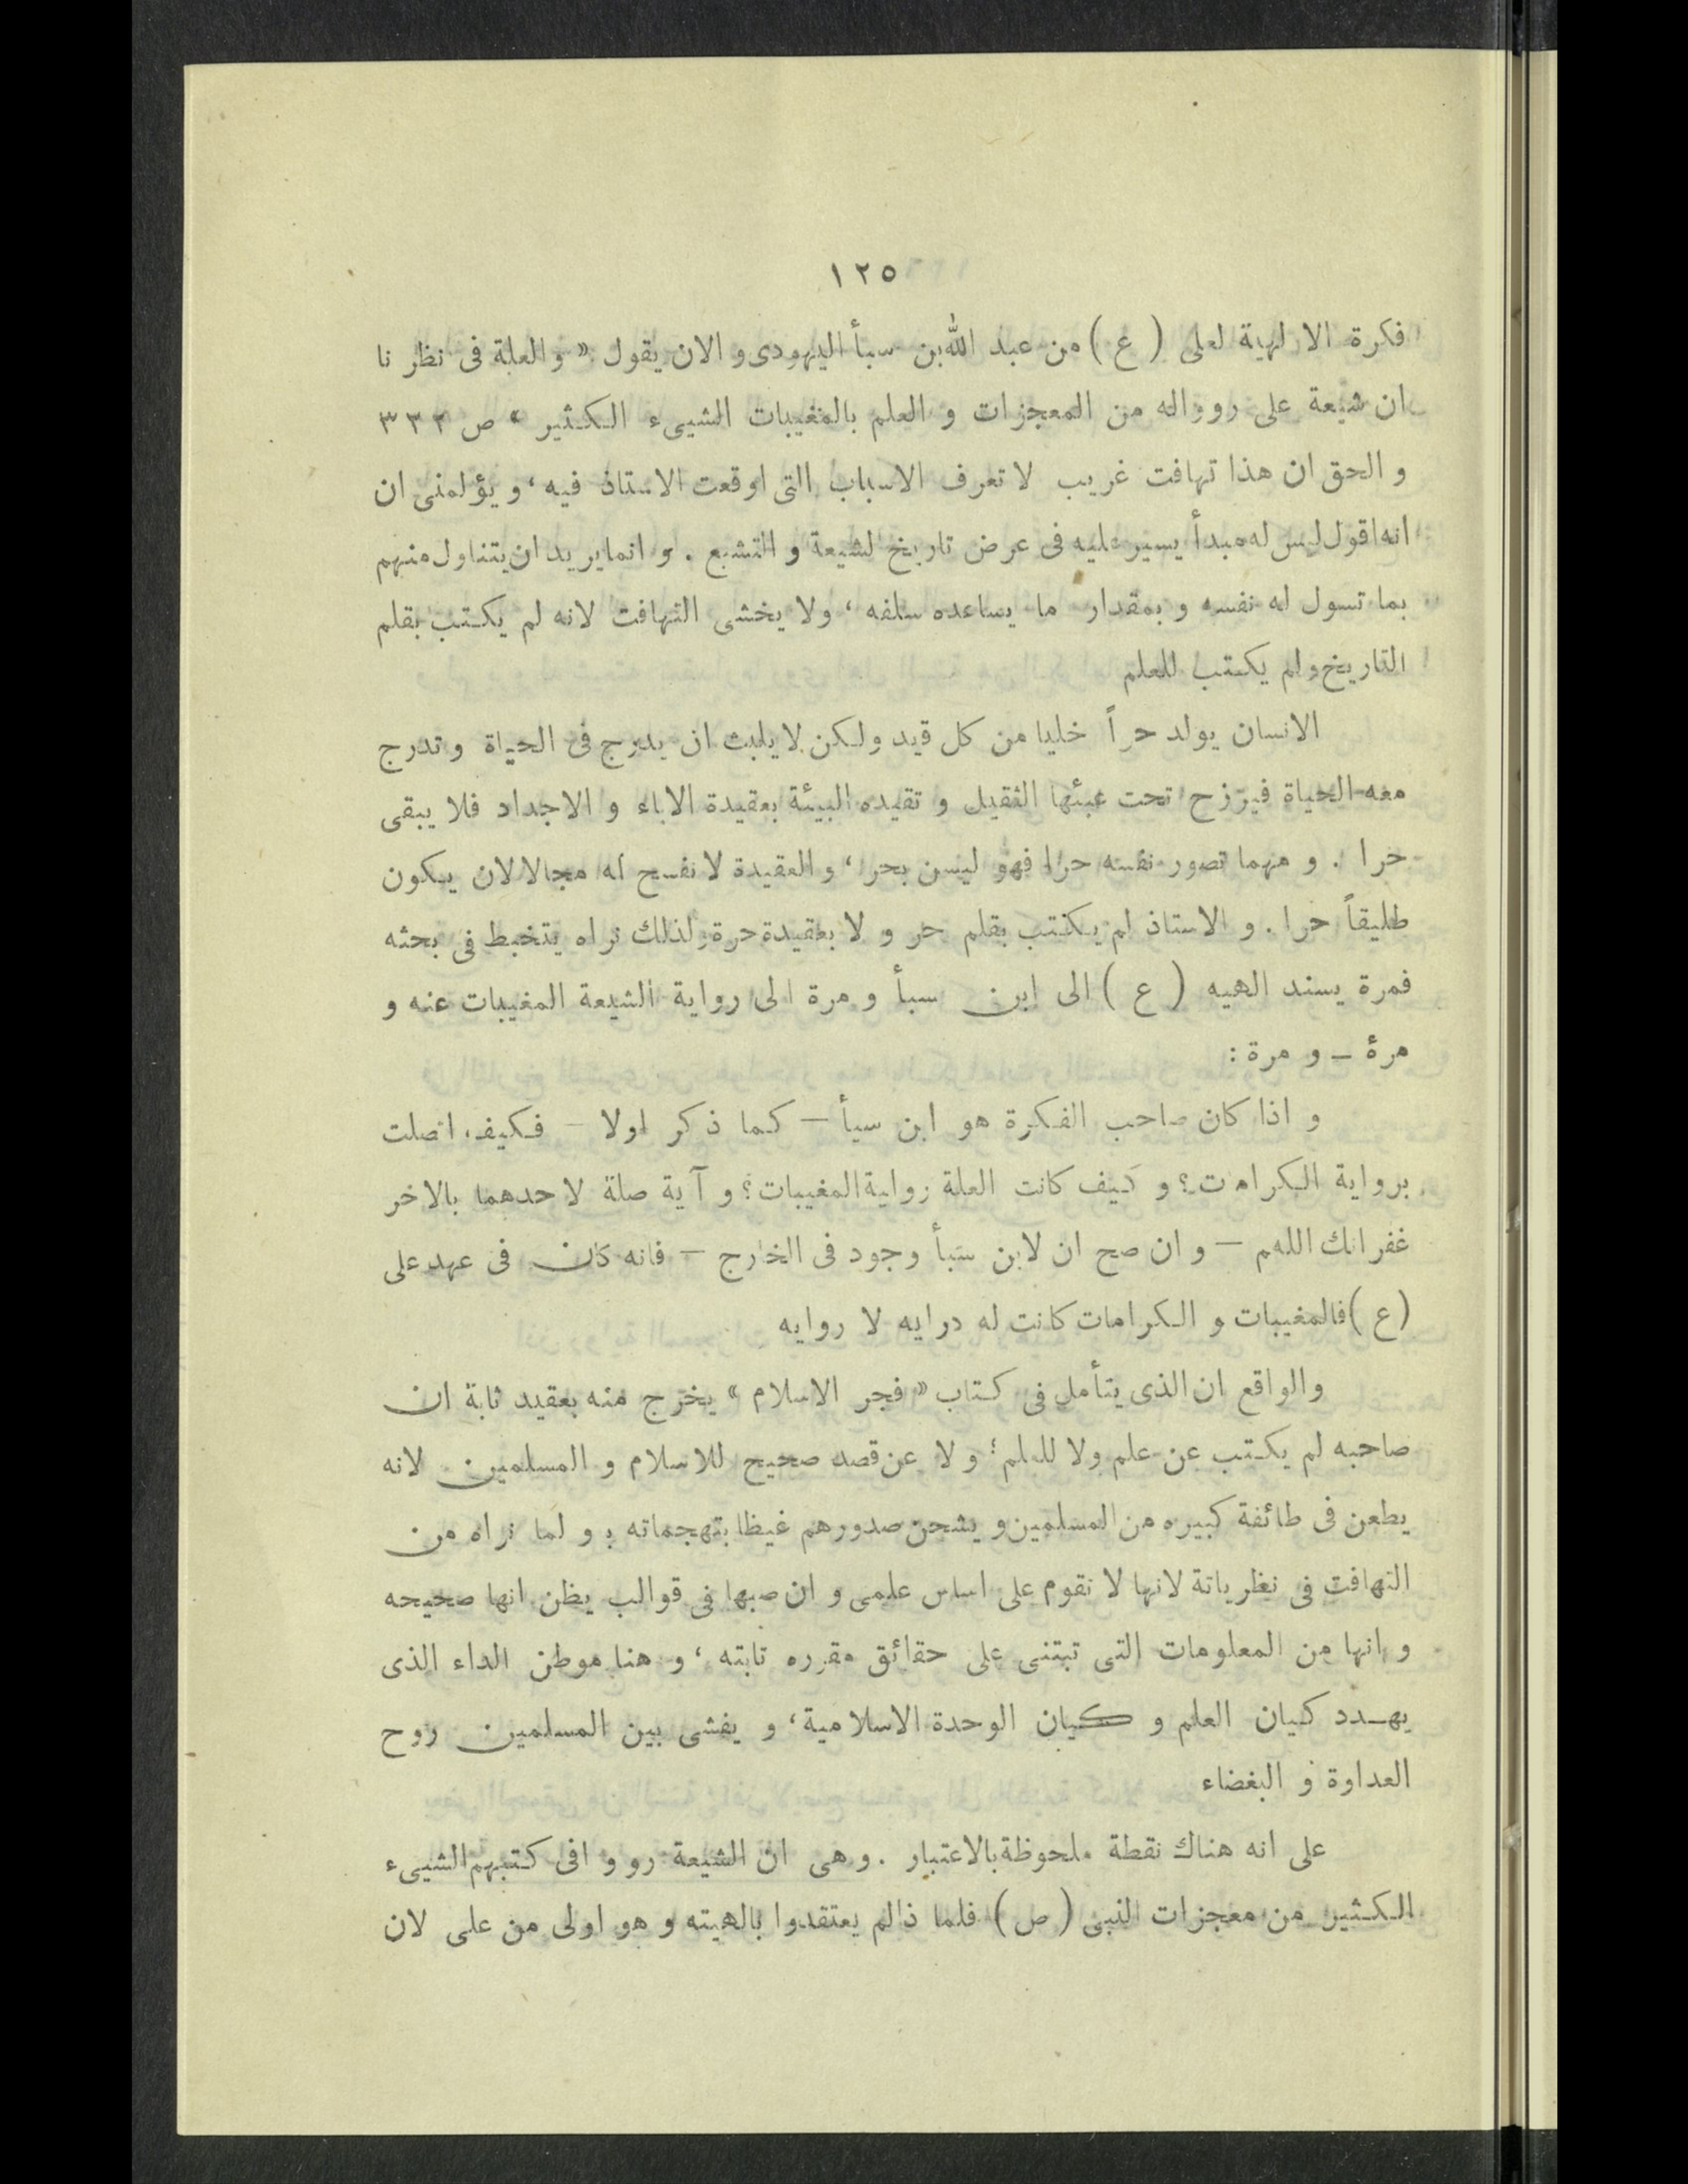 ١٢٥
فكرة الالهية لعلى ( ع ) من عبد الله بن سبأ اليهودى و الان يقول « و العلة فى نظر نا
ان شيعة على رووا له من المعجزات و العلم بالمغيبات الشيىء الكثير » ص ٣٢٣
و الحق ان هذا تهافت غريب لا تعرف الاسباب التى اوقعت الاستاذ فيه ، و يؤلمنى ان
انه اقول ليس له مبدأ يسير عليه فى عرض تاريخ لشيعة و التشيع . و انما يريد ان يتناول منهم
بما تسول له نفسه و بمقدار ما يساعده سلفه ، ولا يخشى التهافت لانه لم يكتب بقلم
التاريخ ولم يكتب للعلم
الانسان يولد حراً خليا من كل قيد ولكن لا يلبث ان يدرج فى الحياة وتدرج
معه الحياة فيرزح تحت عبئها الثقيل و تقيده البيئة بعقيدة الاباء و الاجداد فلا يبقى
حرا . و مهما تصور نفسه حرا فهو ليس بحر ، و العقيدة لا تفسح له مجالا لان يكون
طليقاً حرا . و الاستاذ لم يكتب بقلم حر و لا بعقيدة حرة ولذلك نراه يتخبط فى بحثه
فمرة يسند الهيه ( ع ) الى ابن سبأ و مرة الى رواية الشيعة المغيبات عنه و
مرة – و مرة :
و اذا كان صاحب الفكرة هو ابن سبأ – كما ذكر اولا – فكيف اتصلت
برواية الكرامات ؟ و كيف كانت العلة رواية المغيبات ؟ و آية صلة لاحدهما بالاخر
غفرانك اللهم – و ان صح ان لابن سبأ وجود فى الخارج – فانه كان فى عهد على
( ع ) فالمغيبات و الكرامات كانت له درايه لا روايه
والواقع ان الذى يتأمل فى كتاب « فجر الاسلام » يخرج منه بعقيد ثابة ان
صاحبه لم يكتب عن علم ولا للعلم ؛ و لا عن قصد صحيح للاسلام و المسلمين لانه
يطعن فى طائفة كبيره من المسلمين و يشحن صدورهم غيظا بتهجماته ؛ و لما نراه من
التهافت فى نظرياتة لانها لا تقوم على اساس علمى و ان صبها فى قوالب يظن انها صحيحه
و انها من المعلومات التى تبتنى على حقائق مقرره تابته ، و هنا موطن الداء الذى
يهــدد كيان العلم و كيان الوحدة الاسلامية ، و يفشى بين المسلمين روح
العداوة و البغضاء
على انه هناك نقطة ملحوظة بالاعتبار . و هى ان الشيعة رو و افى كتبهم الشيىء
الكثير من معجزات النبى ( ص ) فلما ذالم يعتقدوا بالهيته و هو اولى من على لان